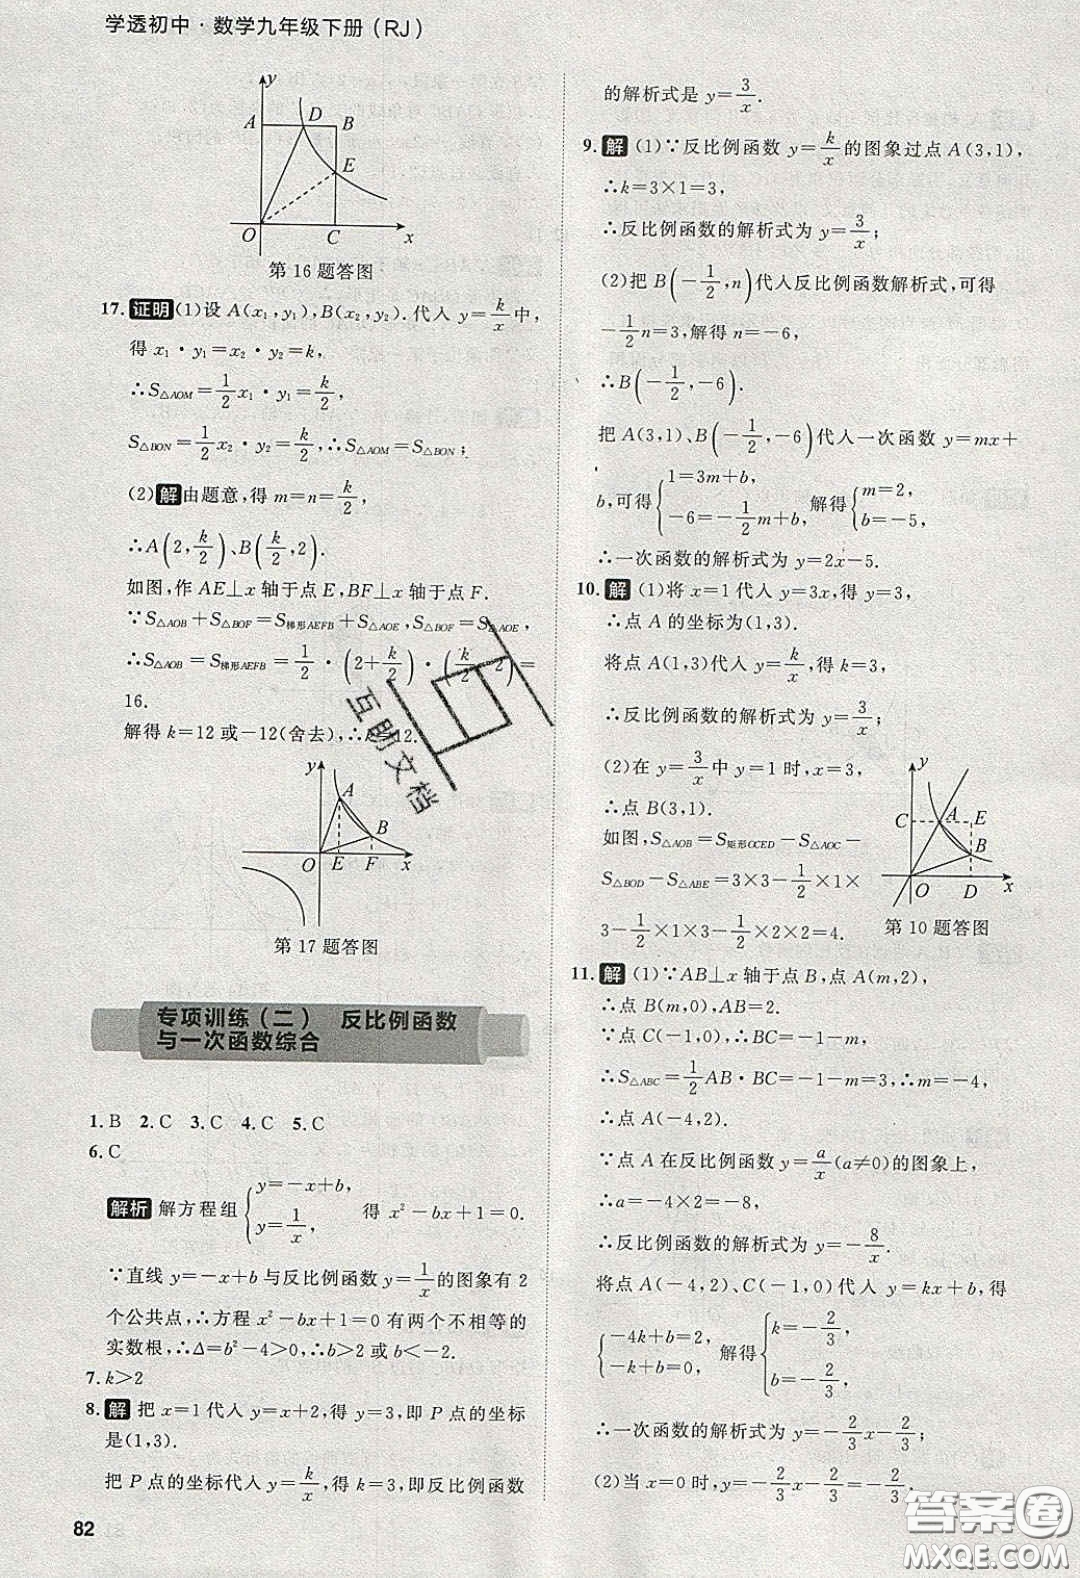 学透初中·数学九年级下册(RJ)
y
A
D
B
E
O
C
x
第16题答图
17. 证明 (1)设 A(x₁,y₁),B(x₂,y₂).代入 y=k/x 中,
得 x₁·y₁=x₂·y₂=k,
∴S△AOM=1/2 x₁·y₁=k/2,
S△BON=1/2 x₂·y₂=k/2,∴S△AOM=S△BON;
(2) 解 由题意,得 m=n=k/2,
∴A(2,k/2)、B(k/2,2).
如图,作 AE⊥x 轴于点 E,BF⊥x 轴于点 F.
∵S△AOB+S△BOF=S梯形AEFB+S△AOE,S△BOF=S△AOE,
∴S△AOB=S梯形AEFB=1/2·(2+k/2)·(k/2-2)=
16.
解得 k=12 或-12(舍去),∴k=12.
y
A
B
O
E
F
x
第17题答图
专项训练(二) 反比例函数
与一次函数综合
1. B 2. C 3. C 4. C 5. C
6. C
解析 解方程组{y=-x+b, y=1/x, 得 x²-bx+1=0.
∵直线 y=-x+b 与反比例函数 y=1/x 的图象有 2
个公共点,∴方程 x²-bx+1=0 有两个不相等的
实数根,∴Δ=b²-4>0,∴b>2 或 b<-2.
7. k>2
8. 解 把 x=1 代入 y=x+2,得 y=3,即 P 点的坐标
是(1,3).
把 P 点的坐标代入 y=k/x,得 k=3,即反比例函数
82
的解析式是 y=3/x.
9. 解 (1)∵反比例函数 y=k/x 的图象过点 A(3,1),
∴k=3×1=3,
∴反比例函数的解析式为 y=3/x;
(2)把 B(-1/2,n)代入反比例函数解析式,可得
-1/2 n=3,解得 n=-6,
∴B(-1/2,-6).
把 A(3,1)、B(-1/2,-6)代入一次函数 y=mx+
b,可得{1=3m+b, -6=-1/2 m+b, 解得{m=2, b=-5,
∴一次函数的解析式为 y=2x-5.
10. 解 (1)将 x=1 代入 y=3x,得 y=3,
∴点 A 的坐标为(1,3).
将点 A(1,3)代入 y=k/x,得 k=3,
∴反比例函数的解析式为 y=3/x;
(2)在 y=3/x 中 y=1 时,x=3,
∴点 B(3,1).
如图,S△AOB=S矩形OCED-S△AOC-
S△BOD-S△ABE=3×3-1/2×1×
3-1/2×1×3-1/2×2×2=4.
y
C
A
E
B
O
D
x
第10题答图
11. 解 (1)∵AB⊥x 轴于点 B,点 A(m,2),
∴点 B(m,0),AB=2.
∵点 C(-1,0),∴BC=-1-m,
∴S△ABC=1/2 AB·BC=-1-m=3,∴m=-4,
∴点 A(-4,2).
∵点 A 在反比例函数 y=a/x(a≠0)的图象上,
∴a=-4×2=-8,
∴反比例函数的解析式为 y=-8/x.
将点 A(-4,2)、C(-1,0)代入 y=kx+b,得
{-4k+b=2, -k+b=0, 解得{k=-2/3, b=-2/3,
∴一次函数的解析式为 y=-2/3 x-2/3;
(2)当 x=0 时,y=-2/3 x-2/3=-2/3,
互助文档
答案圈
MXQE.COM